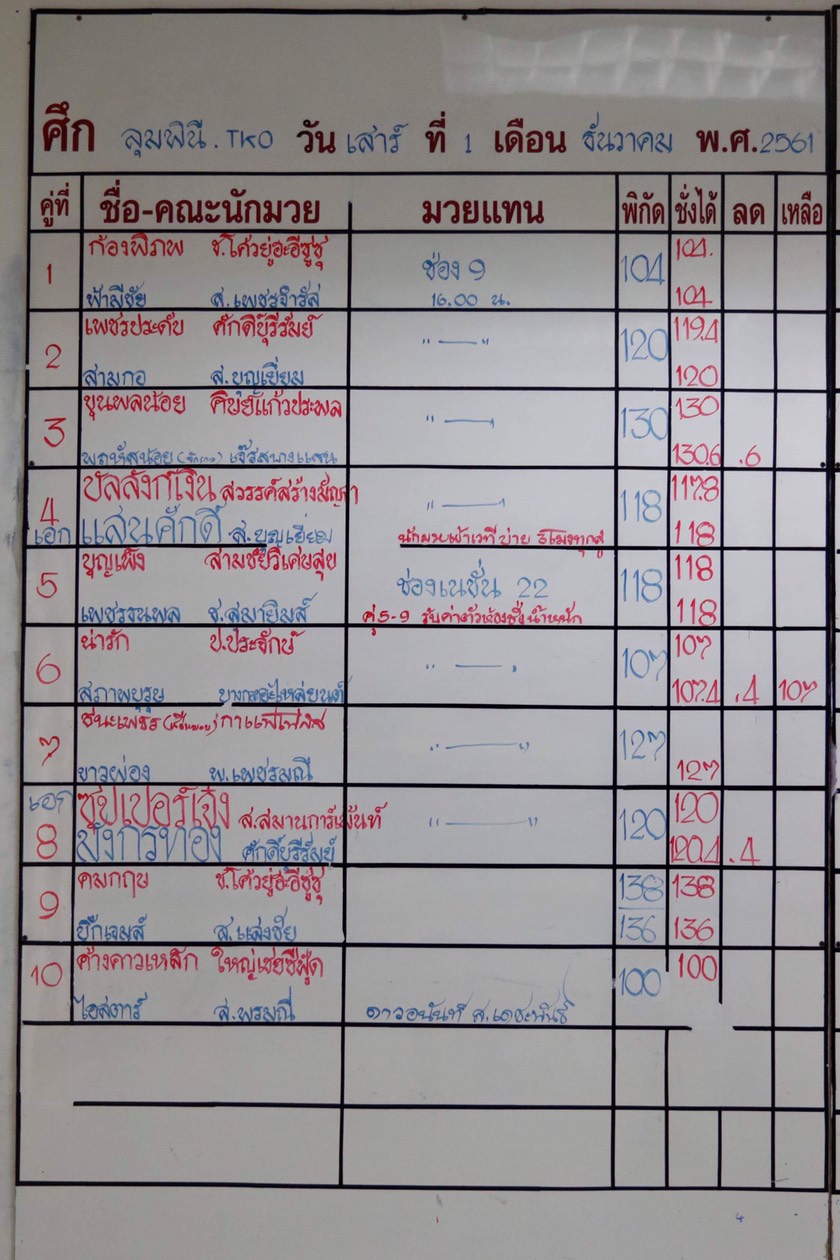 ศึก ลุมพินี.TKO วัน เสาร์ ที่ 1 เดือน ธันวาคม พ.ศ.2561
คู่ที่ ชื่อ-คณะนักมวย มวยแทน พิกัด ชั่งได้ ลด เหลือ
1 ก้องพิภพ ช.โค้วยู่ฮะอีซูซุ ช่อง 9 104 104.
ฟ้ามีชัย ส.เพชรจำรัส 16.00 น. 104
2 เพชรประดับ ศักดิ์บุรีรัมย์ " — " 120 119.4
สามกอ ส.บุญเยี่ยม 120
3 ขุนพลน้อย ศิษย์แก้วประพล " — 130 130
130.6 .6
4 บัลลังก์เงิน สวรรค์สร้างมัญจา " — 118 117.8
เอก แสนศักดิ์ ส.บุญเยี่ยม นักมวยเข้าเวทีบ่าย 3โมงทุกคู่ 118
5 บุญเพ็ง สามชัยวิเศษสุข ช่องเนชั่น 22 118 118
เพชรธนพล ช.สมายิมส์ คู่5-9 รับค่าตัวห้องชั่งน้ำหนัก 118
6 น่ารัก ป.ประจักษ์ " — 107 107
สุภาพบุรุษ 107.4 .4 107
7 " — " 127
ขาวผ่อง พ.เพชรมณี 127
เอก ซุปเปอร์เจ้ง ส.สมานการ์เม้นท์ " — " 120 120
8 มังกรทอง ศักดิ์บุรีรัมย์ 120.4 .4
9 คมกฤษ ช.โค้วยู่ฮะอีซูซุ 138 138
บิ๊กเจมส์ ส.แสงชัย 136 136
10 ค้างคาวเหล็ก ใหญ่เชยซีฟู้ด 100 100
ไอสตาร์ ส.พรมณี ดาวอนันท์ ส.เดชะพันธ์